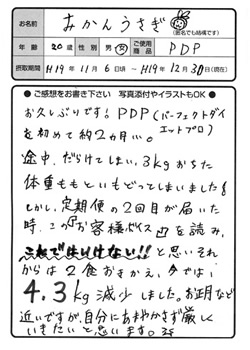 お名前 みかんうさぎ
(匿名でも結構です)
年齢 20歳 性別 男・女 ご使用商品 PDP
摂取期間 H19年11月6日頃~H19年12月30日(現在)
●ご感想をお書き下さい 写真添付やイラストもOK●
お久しぶりです!PDP(パーフェクトダイエットプロ)
を初めて約2か月…。
途中、だらけてしまい、3kgおちた
体重ももといもどってしまいました!
しかし、定期便の2回目が届いた
時、この「お客様ボイス」を読み、
これではいけない!!と思いそれ
からは2食おきかえ、今では、
4.3kg減少しました。お正月など
近いですが、自分にあまやかさず厳しく
いきたいと思います。